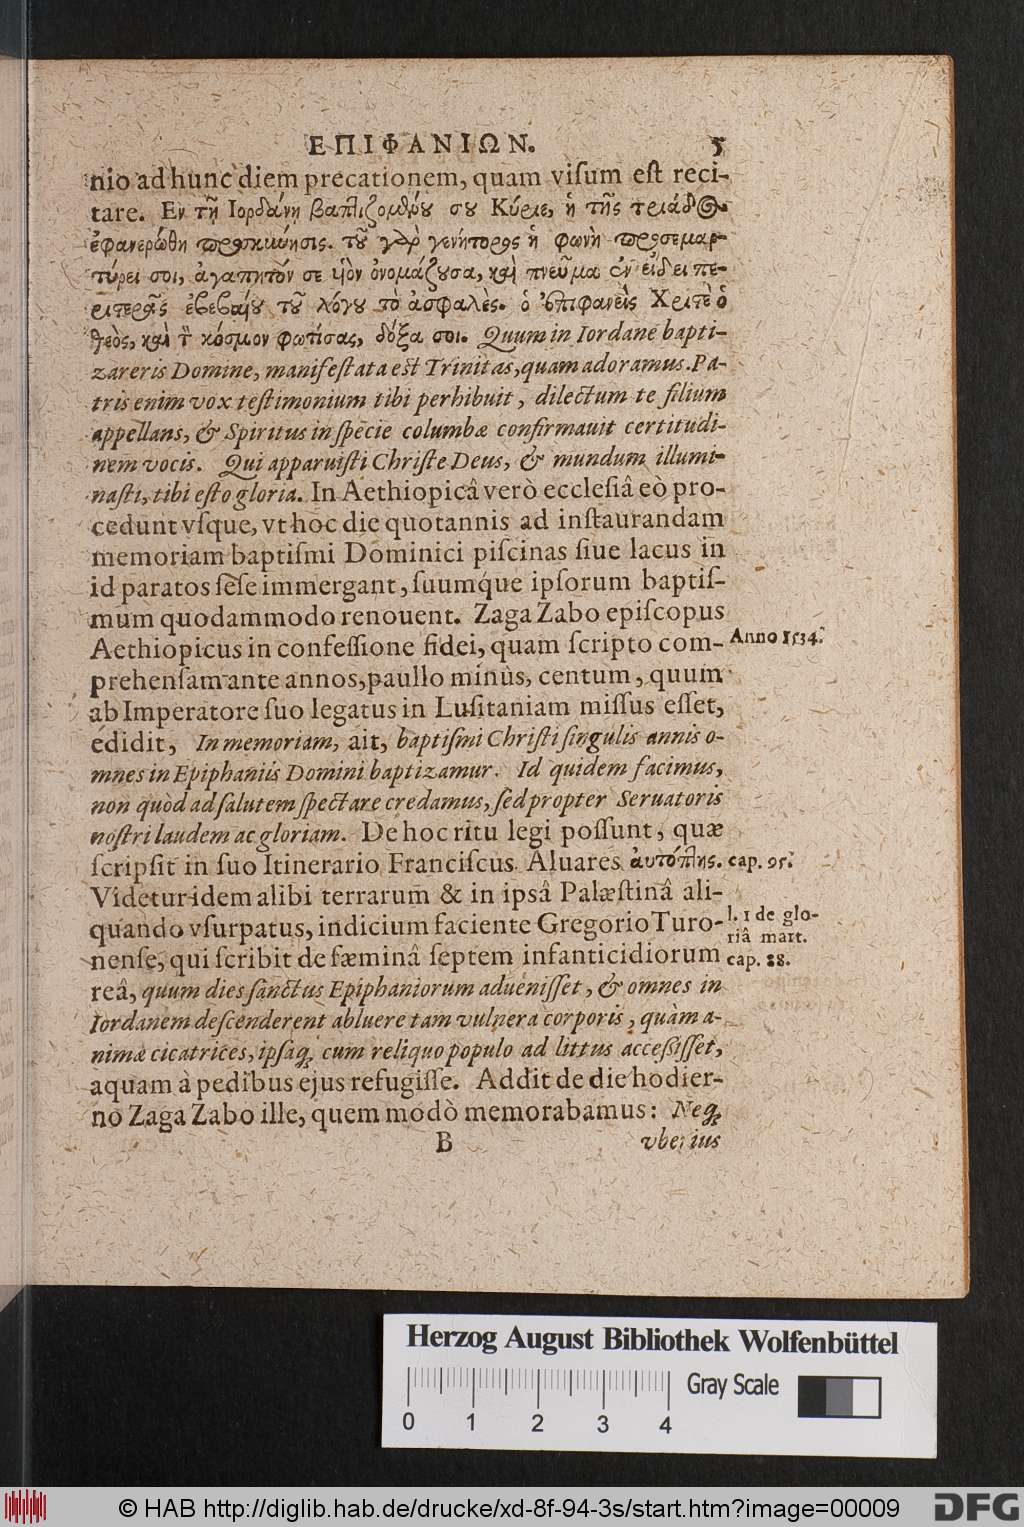 ΕΠΙΦΑΝΙΩΝ. 5
nio ad hunc diem precationem, quam viſum eſt reci-
tare. Εν τῇ Ιορδάνῃ βαπτιζομένου σου Κύριε, ἡ τῆς τριάδος
ἐφανερώθη προσκύνησις. τοῦ γὰρ γενήτορος ἡ φωνὴ προσεμαρ-
τύρει σοι, ἀγαπητόν σε υἱὸν ὀνομάζουσα, καὶ πνεῦμα ἐν εἴδει πε-
ριστερᾶς ἐβεβαίου τοῦ λόγου τὸ ἀσφαλὲς. ὁ ἐπιφανεὶς Χριστὲ ὁ
θεὸς, καὶ τὸν κόσμον φωτίσας, δόξα σοι. Quum in Iordane bapti-
zareris Domine, manifeſtata eſt Trinitas, quam adoramus. Pa-
tris enim vox teſtimonium tibi perhibuit, dilectum te filium
appellans, & Spiritus in ſpecie columbæ confirmauit certitudi-
nem vocis. Qui apparuiſti Chriſte Deus, & mundum illumi-
naſti, tibi eſto gloria. In Aethiopicâ verò eccleſiâ eò pro-
cedunt vſque, vt hoc die quotannis ad inſtaurandam
memoriam baptiſmi Dominici piſcinas ſiue lacus in
id paratos ſeſe immergant, ſuumq́ue ipſorum baptiſ-
mum quodammodo renouent. Zaga Zabo epiſcopus
Aethiopicus in confeſſione fidei, quam ſcripto com- Anno 1534.
prehenſam ante annos, paullo minùs, centum, quum
ab Imperatore ſuo legatus in Luſitaniam miſſus eſſet,
edidit, In memoriam, ait, baptiſmi Chriſti ſingulis annis o-
mnes in Epiphaniis Domini baptizamur. Id quidem facimus,
non quòd ad ſalutem ſpectare credamus, ſed propter Seruatoris
noſtri laudem ac gloriam. De hoc ritu legi poſſunt, quæ
ſcripſit in ſuo Itinerario Franciſcus Aluares αὐτόπτης. cap. 95.
Videtur idem alibi terrarum & in ipsâ Palæſtinâ ali-
quando vſurpatus, indicium faciente Gregorio Turo- l. 1 de glo-
riâ mart.
nenſe, qui ſcribit de fæminâ ſeptem infanticidiorum cap. 88.
reâ, quum dies ſanctus Epiphaniorum adueniſſet, & omnes in
Iordanem deſcenderent abluere tam vulnera corporis, quàm a-
nimæ cicatrices, ipſaq́; cum reliquo populo ad littus acceſſiſſet,
aquam à pedibus ejus refugiſſe. Addit de die hodier-
no Zaga Zabo ille, quem modò memorabamus: Neq́;
B vberius
Herzog August Bibliothek Wolfenbüttel
Gray Scale
0 1 2 3 4
© HAB http://diglib.hab.de/drucke/xd-8f-94-3s/start.htm?image=00009 DFG